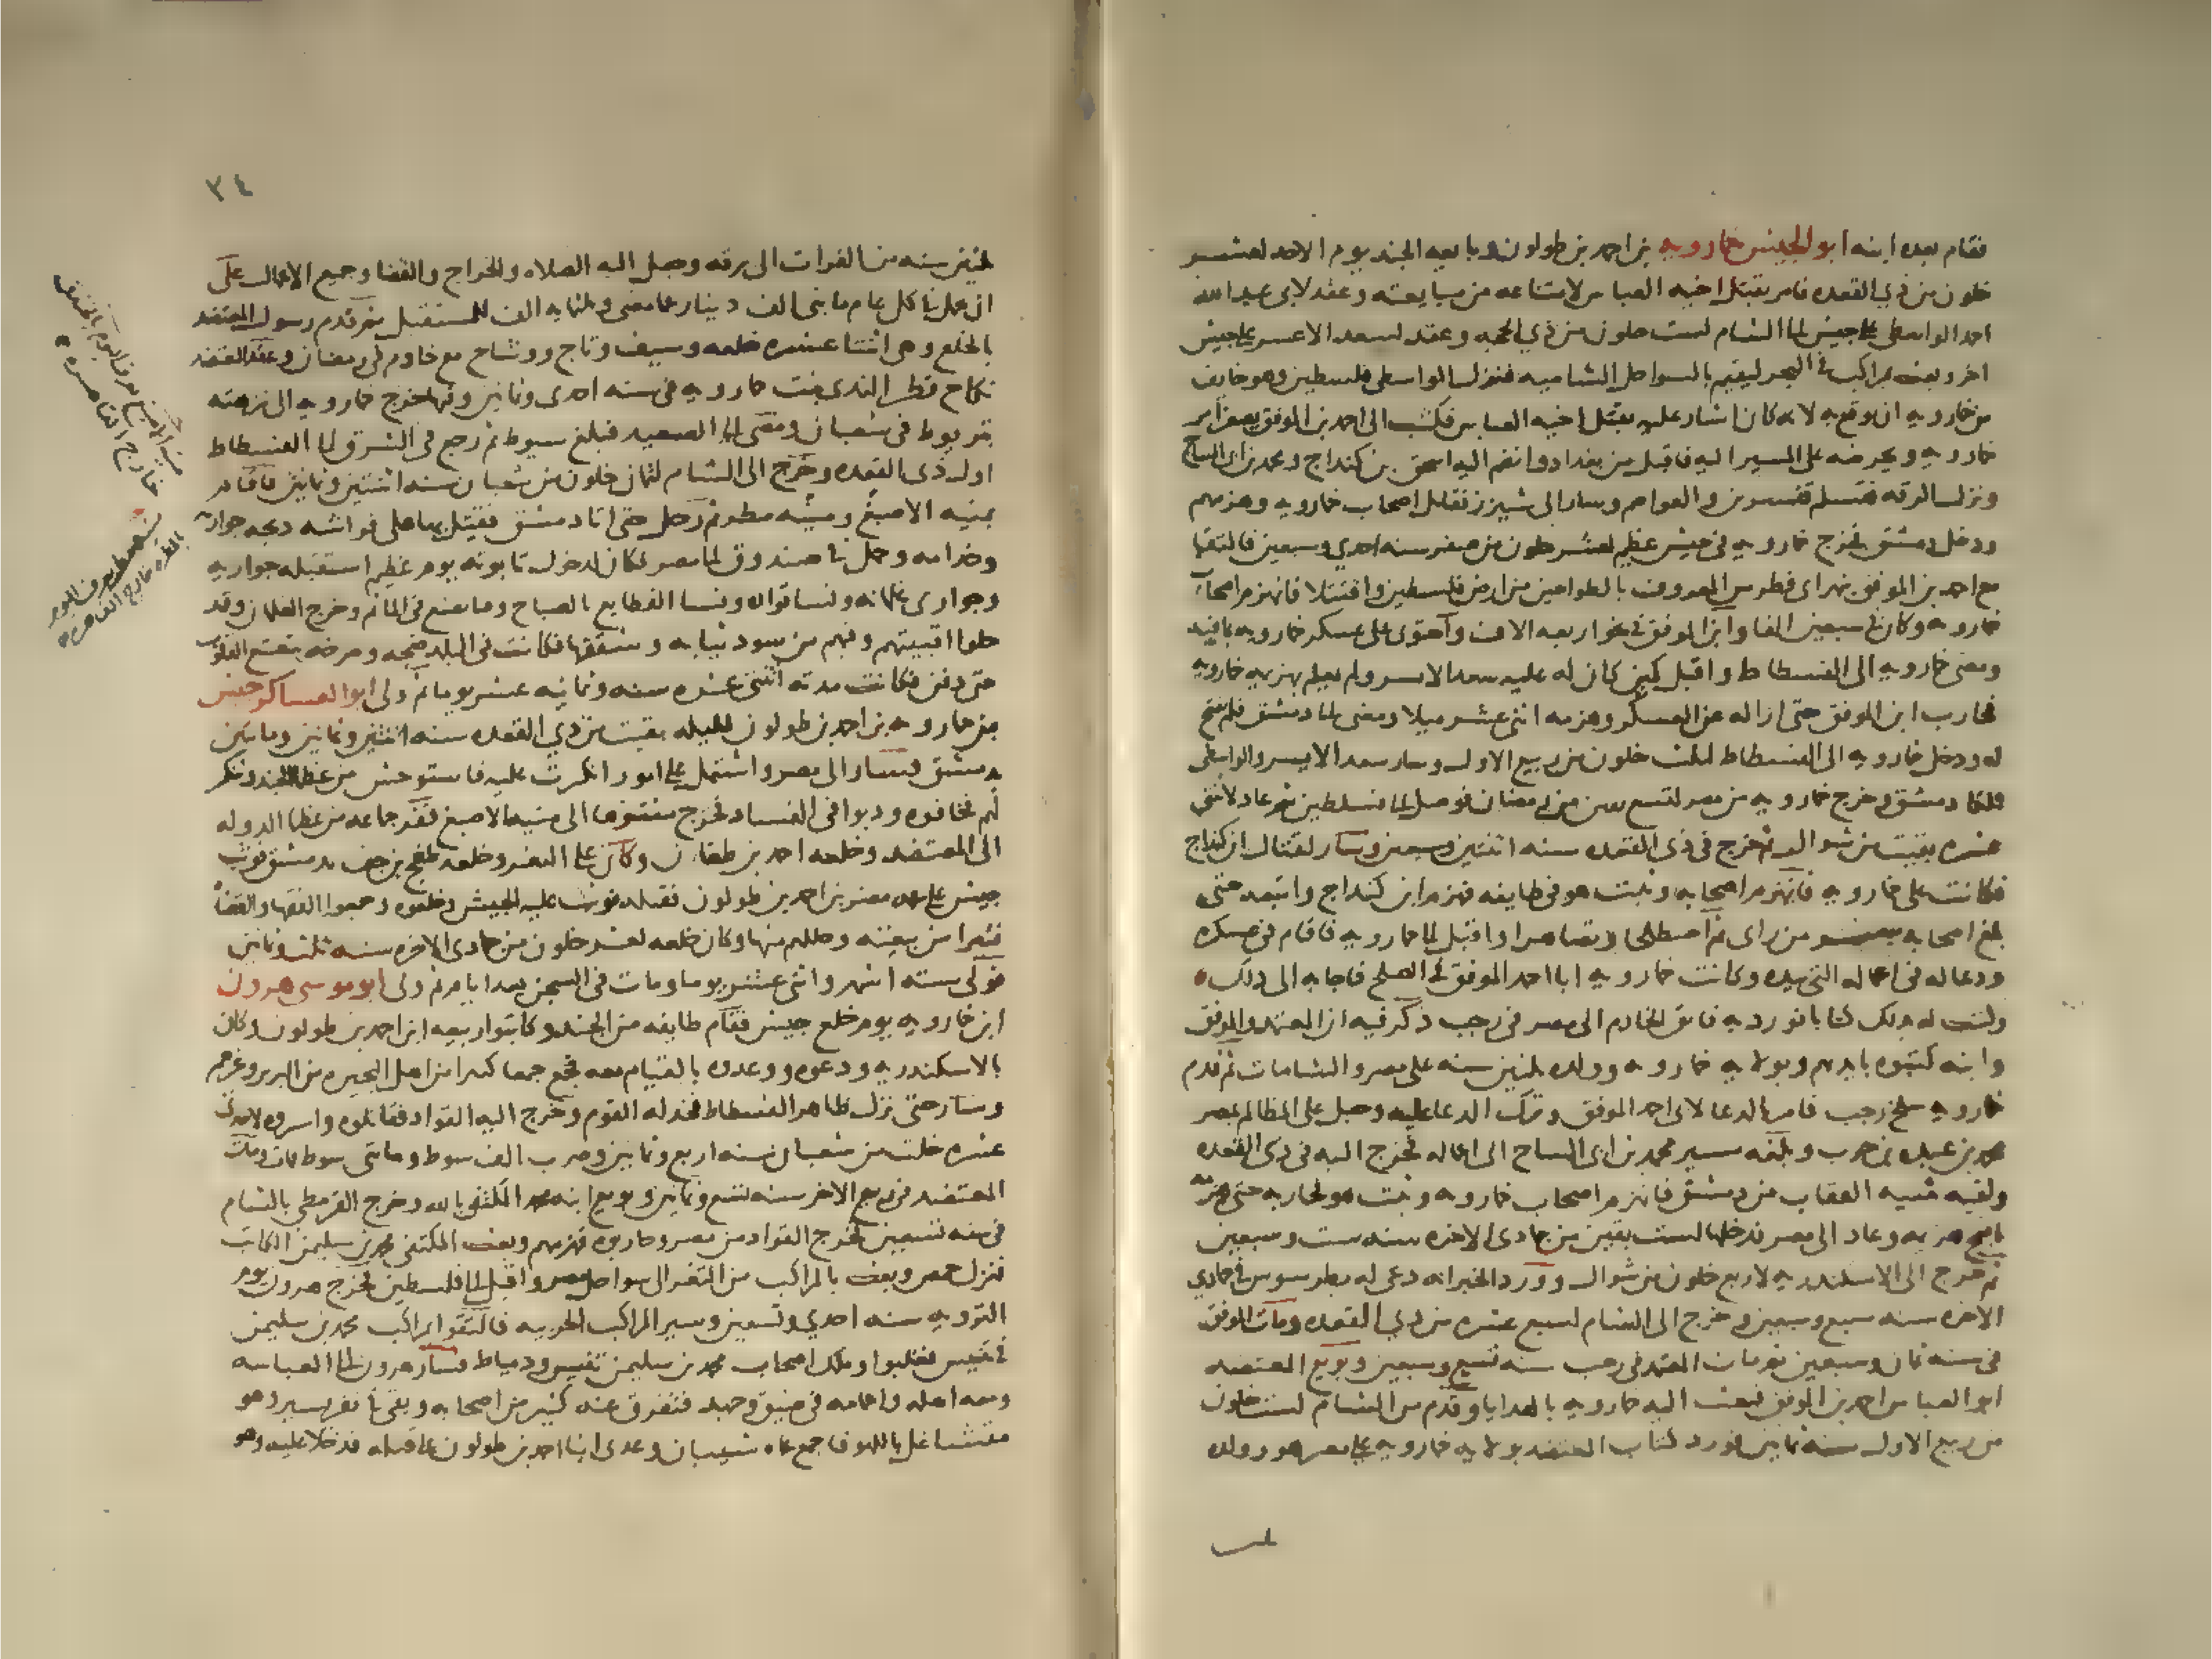 فقام بعده ابنه ابو الجيش خمارويه بن احمد بن طولون وبايعه الجند يوم الاحد لعشر
خلون من ذي القعده فامر بقتل اخيه العباس لامتناعه من مبايعته وعقد لابي عبد الله
احمد الواسطي على جيش الى الشام لست خلون من ذي الحجه وعقد لسعد الاعسر على جيش
اخر وبعث بمراكب في البحر ليقيم بالسواحل الشاميه فنزل الواسطي فلسطين وهو خايف
من خمارويه ان يوقع به لانه كان اشار عليه بقتل اخيه العباس فكتب الى احمد بن الموفق يصغر امر
خمارويه ويحرضه على المسير اليه فاقبل من بغداد وانضم اليه اسحق بن كنداج ومحمد بن ابي الساج
ونزل الرقه فتسلم قنسرين والعواصم وسار الى شيزر فقاتل اصحاب خمارويه وهزمهم
ودخل دمشق فخرج خمارويه في جيش عظيم لعشر خلون من صفر سنه احدي وسبعين فالتقيا
مع احمد بن الموفق بنهر ابي فطرس المعروف بالطواحين من ارض فلسطين واقتتلا فانهزم اصحاب
خمارويه وكان في سبعين الفا وابن الموفق في نحو اربعه الاف واحتوى على عسكر خمارويه بما فيه
ومضى خمارويه الى الفسطاط واقبل كمين كان له عليه سعد الايسر ولم يعلم بهزيمه خمارويه
فحارب ابن الموفق حتى ازاله عن العسكر وهزمه اثنى عشر ميلا ومضى الى دمشق فلم يفتح
له ودخل خمارويه الى الفسطاط لثلث خلون من ربيع الاول وسار سعد الايسر والواسطي
فملكا دمشق وخرج خمارويه من مصر لسبع بقين من رمضان فوصل الى فلسطين ثم عاد لاثنتي
عشره بقيت من شوال ثم خرج في ذي القعده سنه اثنتين وسبعين وسار لقتال ابن كنداج
فكانت على خمارويه فانهزم اصحابه وثبت هو في طايفه فهزم ابن كنداج واتبعه حتى
بلغ اصحابه سر من راى ثم اصطلحا وتصاهرا واقبل الى خمارويه فاقام في عسكره
ودعا له في اعماله التي بيده وكاتب خمارويه ابا احمد الموفق في الصلح فاجابه الى ذلك
وكتب له بذلك كتابا فورد به فايق الخادم الى مصر في رجب ذكر فيه ان المعتمد والموفق
وابنه كتبوه بايديهم وبولايه خمارويه وولده ثلثين سنه على مصر والشامات ثم قدم
خمارويه سلخ رجب فامر بالدعا لابي احمد الموفق وترك الدعا عليه وجعل على المظالم بمصر
محمد بن عبده بن حرب وبلغه مسير محمد بن ابي الساج الى اعماله فخرج اليه في ذي القعده
ولقيه ثنيه العقاب من دمشق فانهزم اصحاب خمارويه وثبت هو فحاربه حتى هزمه
اقبح هزيمه وعاد الى مصر فدخلها لست بقين من جمادى الاخره سنه ست وسبعين
ثم خرج الى الاسكندريه لاربع خلون من شوال وورد الخبر انه دعي له بطرسوس في جمادي
الاخره سنه سبع وسبعين وخرج الى الشام لسبع عشره من ذي القعده ومات الموفق
في سنه ثمان وسبعين ثم مات المعتمد في رجب سنه تسع وسبعين وبويع المعتضد
ابو العباس احمد بن الموفق فبعث اليه خمارويه بالهدايا وقدم من الشام لست خلون
من ربيع الاول سنه ثمانين فورد كتاب المعتضد بولايه خمارويه على مصر هو وولده
٣٤
ثلثين سنه من الفرات الى برقه وجعل اليه الصلاه والخراج والقضا وجميع الاعمال على
ان يحمل في كل عام مايتى الف دينار عما مضى وثلثمايه الف للمستقبل ثم قدم رسول المعتضد
بالخلع وهي اثنتا عشره خلعه وسيف وتاج ووشاح مع خادم في رمضان وعقد المعتضد
نكاح قطر الندى بنت خمارويه في سنه احدى وثمانين وفيها خرج خمارويه الى نزهته
بتربوط في شعبان ومضى الى الصعيد فبلغ سيوط ثم رجع في الشرق الى الفسطاط
اول ذي القعده وخرج الى الشام لثمان خلون من شعبان سنه اثنتين وثمانين فاقام
بمنيه الاصبغ ومنيه مطر ثم رحل حتى اتا دمشق فقتل بها على فراشه ذبحه جواريه
وخدامه وحمل في صندوق الى مصر فكان لدخول تابوته يوم عظيم استقبله جواريه
وجواري غلمانه ونسا قواده ونسا القطايع بالصياح وما يصنع في الماتم وخرج الغلمان وقد
حلوا اقبيتهم وفيهم من سود ثيابه وشققها فكانت في البلد ضجه وصرخه تتعتع القلوب
حتى دفن فكانت مدته اثنتي عشره سنه وثمانيه عشر يوما ثم ولى ابو العساكر جيش
بن خمارويه بن احمد بن طولون لليله بقيت من ذي القعده سنه اثنتين وثمانين ومايتين
بدمشق فسار الى مصر واشتمل على امور انكرت عليه فاستوحش من عظما الجند وتنكر
لهم فخافوه ودبوا في الفساد فخرج متنزها الى منيه الاصبغ ففر جماعه من عظما الدوله
الى المعتضد وخلعه احمد بن طغان وكان على الثغر وخلعه طغج بن جف بدمشق فوثب
جيش على عمه مضر بن احمد بن طولون فقتله فوثب عليه الجيش وخلعوه وجمعوا الفقها والقضاه
فتبرا من بيعته وحللهم منها وكان خلعه لعشر خلون من جمادى الاخره سنه ثلث وثمانين
فولى سته اشهر واثني عشر يوما ومات في السجن بعد ايام ثم ولى ابو موسى هرون
ابن خمارويه يوم خلع جيش فقام طايفه من الجند وكاتبوا ربيعه ابن احمد بن طولون وكان
بالاسكندريه ودعوه ووعدوه بالقيام معه فجمع جمعا كبيرا من اهل البحيره من البربر وغيرهم
وسار حتى نزل ظاهر الفسطاط فخذله القوم وخرج اليه القواد فقاتلوه واسروه لاحدى
عشره خلت من شعبان سنه اربع وثمانين وضرب الف سوط ومايتي سوط فمات ومات
المعتضد في ربيع الاخر سنه تسع وثمانين وبويع ابنه محمد المكتفي بالله وخرج القرمطي بالشام
في سنه تسعين فخرج القواد من مصر وحاربوه فهزمهم وبعث المكتفي محمد بن سليمن الكاتب
فنزل حمص وبعث بالمراكب من الثغر الى سواحل مصر واقبل الى فلسطين فخرج هرون يوم
الترويه سنه احدي وتسعين وسير المراكب الحربيه فالتقوا بمراكب محمد بن سليمن
في تنيس فغلبوا وملك اصحاب محمد بن سليمن تنيس ودمياط فسار هرون الى العباسه
ومعه اهله واعمامه في ضيق وجهد فتفرق عنه كثير من اصحابه وبقي في نفر يسير وهو
متشاغل باللهو فاجمع عماه شيبان وعدى ابنا احمد بن طولون على قتله فدخلا عليه وهو
منيه الاصبغ يعرف اليوم بالخندق
خارج القاهره
منيه مطر يعرف اليوم
بالمطريه خارج القاهره